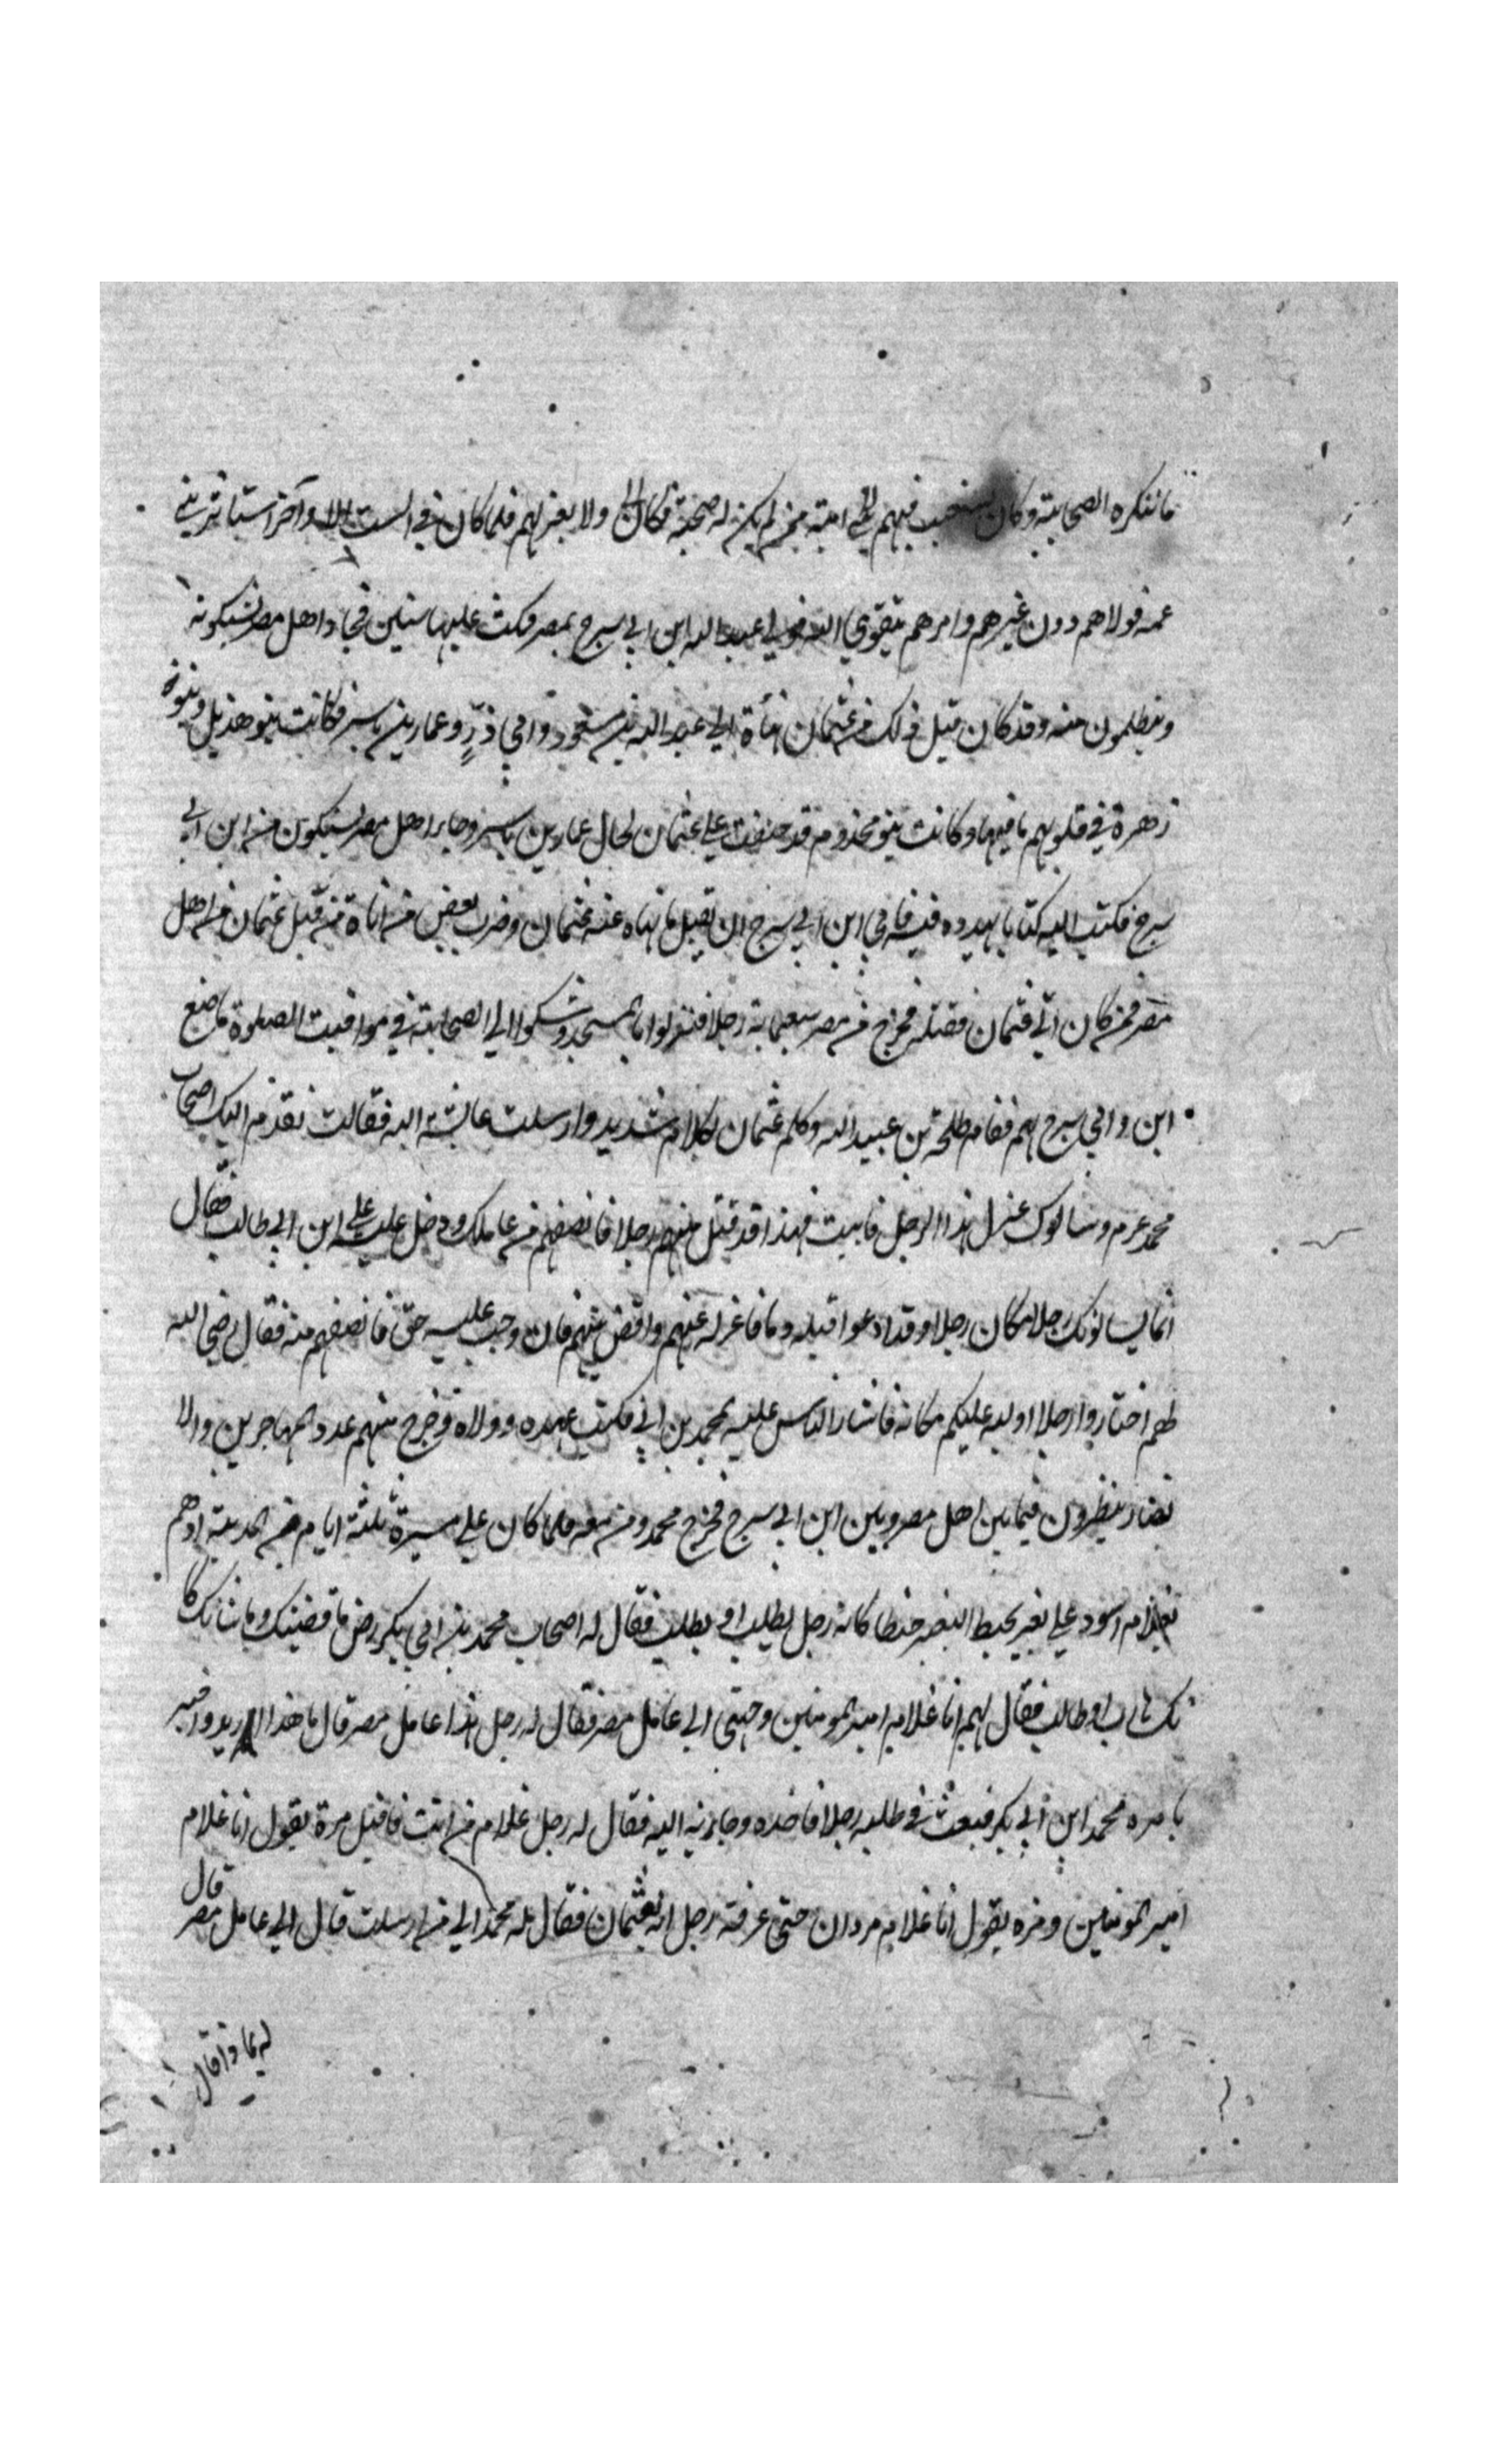 ما ننكره الصحابة وكان يستعتب فيهم بني امية ممن لم يكن له صحبة فكان ولا يعزلهم فلما كان في الست الاواخر استأثر بني
عمه فولاهم دون غيرهم وامرهم بتقوي الله فولي عبد الله ابن ابي سرح بمصر فمكث عليها سنين فجاء اهل مصر يشكونه
ويتظلمون منه وقد كان قبل ذلك من عثمان هنأة الي عبد الله بن مسعود وابي ذرّ وعمار بن ياسر فكانت بنو هذيل وبنو
زهرة في قلوبهم ما فيها وكانت بنو مخذوم قد حنقت علي عثمان لحال عمار بن ياسر وجاء اهل مصر يشكون من ابن ابي
سرح فكتب اليه كتابا يهدده فيه فابي ابن ابي سرح ان يقبل ما نهاه عنه عثمان وضرب بعض من اتاه من قبل عثمان من اهل
مصر ممن كان اتي عثمان فقتله فخرج من مصر سبعماية رجلا فنزلوا المسجد وشكوا الي الصحابة في مواقيت الصلوة ما صنع
ابن وابي سرح بهم فقام طلحة بن عبيد الله وكلم عثمان بكلام شديد وارسلت عايشة اليه فقالت تقدم اليك اصحاب
محمد عرم وسالوك عزل هذا الرجل فابيت فهذا قد قتل منهم رجلا فانصفهم من عاملك ودخل عليه علي ابن ابي طالب فقال
انما يسالونك رجلا مكان رجلا وقد ادعوا قبله دما فاعزله عنهم واقض بينهم فان وجب عليه حق فانصفهم منه فقال رضي الله
لهم اختاروا رجلا اوليه عليكم مكانه فاشار الناس عليه بمحمد بن ابي فكتب عهده وولاه وخرج منهم عدد المهاجرين والا
نصار ينظرون فيما بين اهل مصر وبين ابن ابي سرح فخرج محمد ومن معه فلما كان علي مسيرة ثلثة ايام من المدينة اذهم
بغلام اسود علي بعير يخبط البعير خبطا كانه رجل يطلب او يطلب فقال له اصحاب محمد بن ابي بكر رض ما قضيتك وما شانك كا
نك هارب او طالب فقال لهم انا غلام امير المومنين وجهني الي عامل مصر فقال له رجل هذا عامل مصر قال ما هذا اريد واخبر
بامره محمد ابن ابي بكر فبعث في طلبه رجلا فاخذه وجاء به اليه فقال له رجل غلام من انت فاقبل مرة يقول انا غلام
امير المومنين ومره يقول انا غلام مروان حتي عرفه رجل انه لعثمان فقال له محمد الي من ارسلت قال الي عامل مصر قال
له بماذا قال